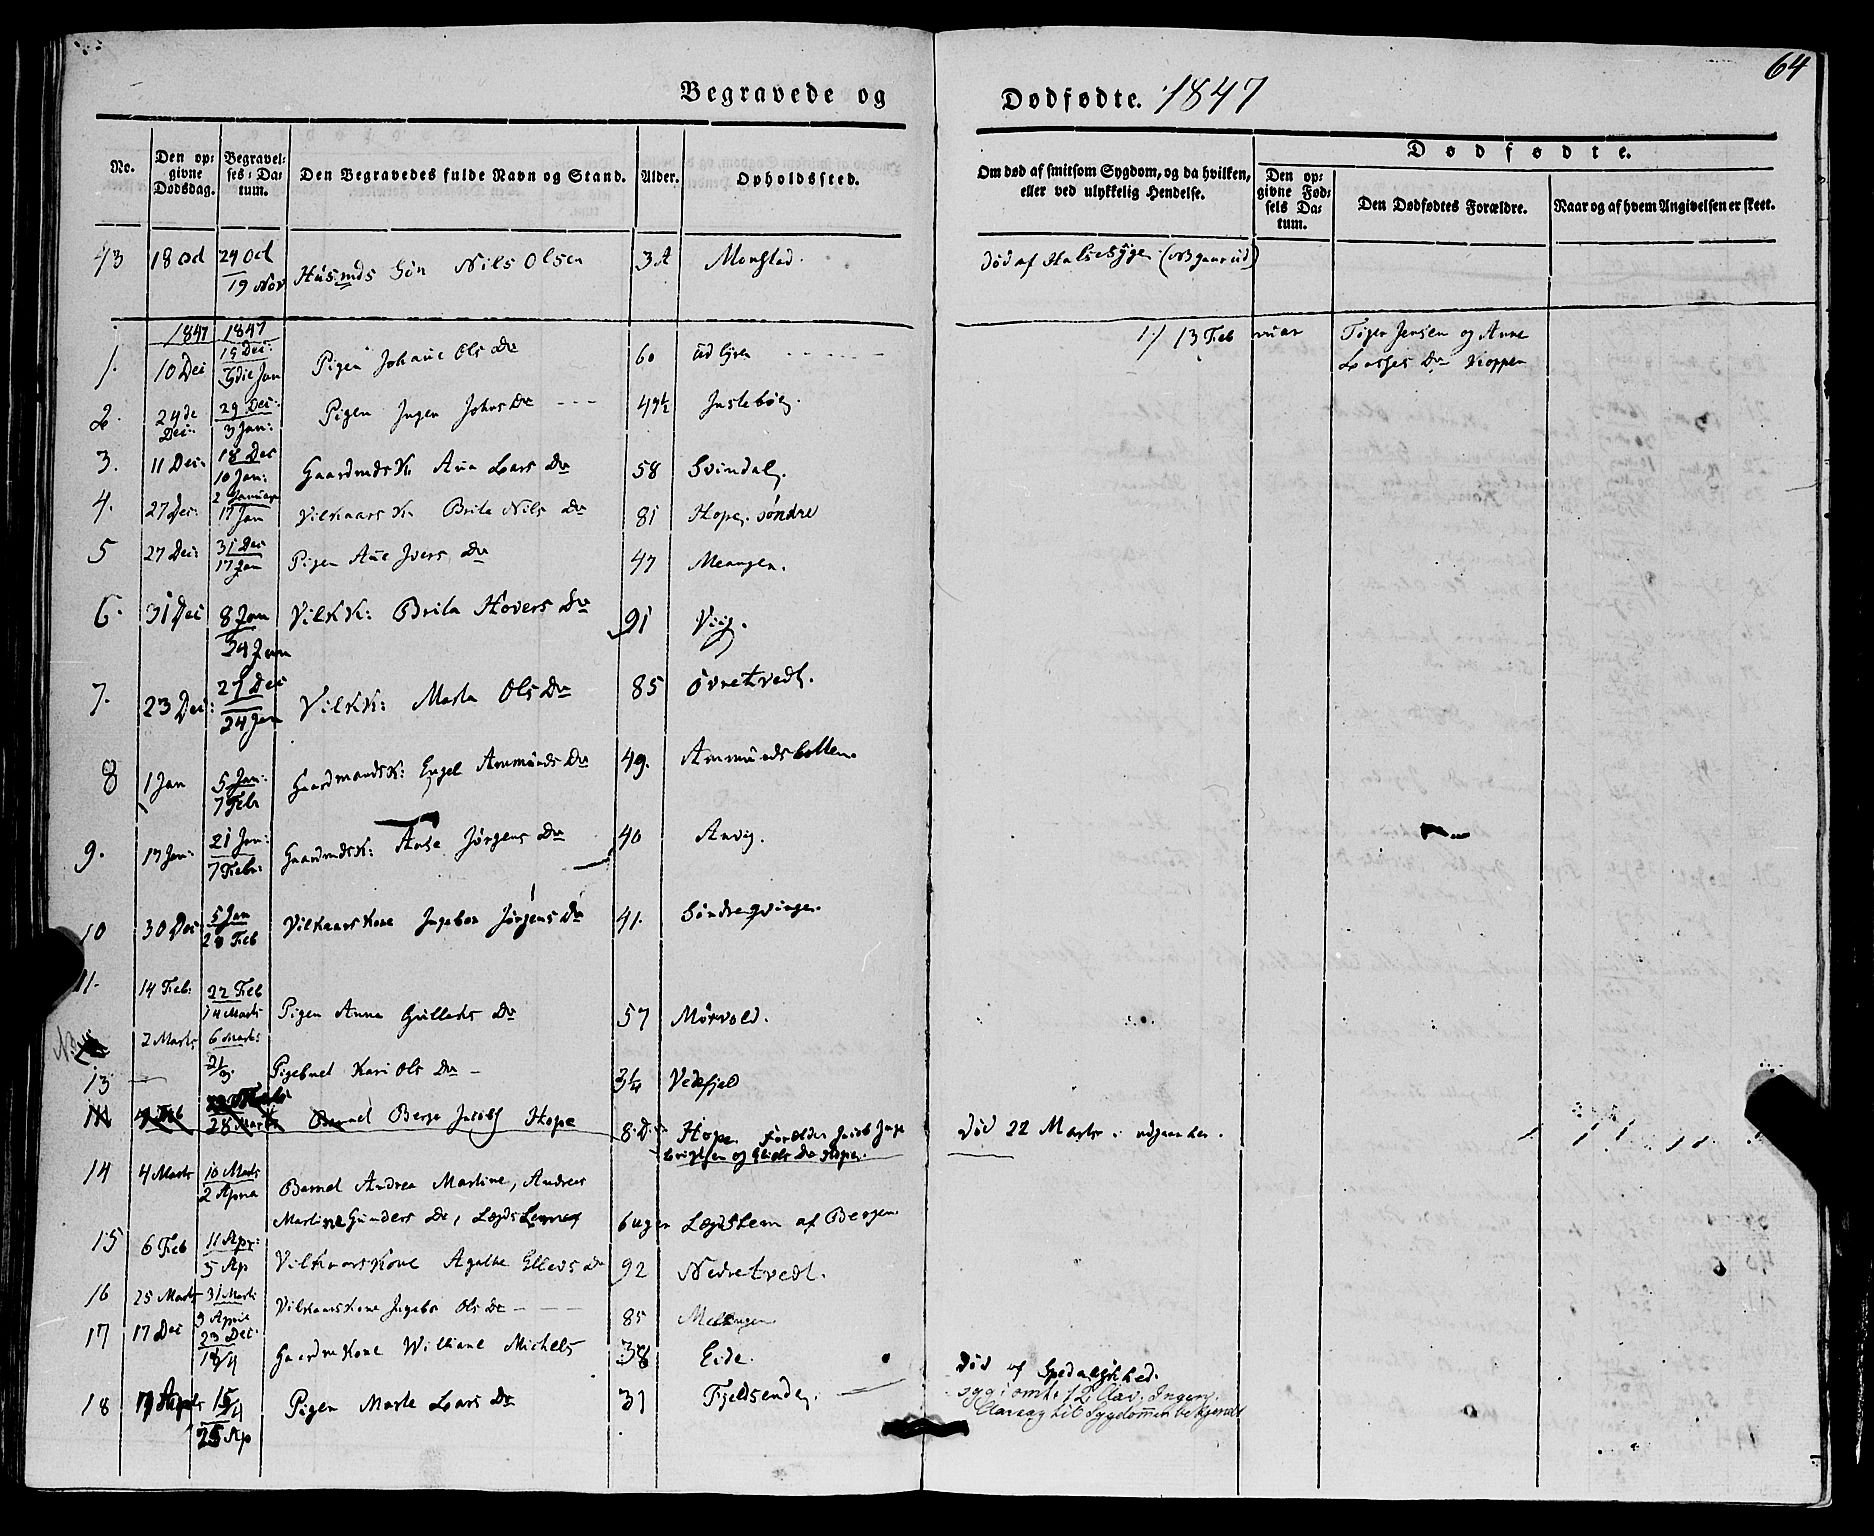 64
Begravede og Dødfødte. 1847
No.
Den op=
givne
Dødsdag.
Begravel=
ses=Da=
tum.
Den Begravedes fulde Navn og Stand.
Alder.
Opholdssted.
Om død af smitsom Sygdom, og da hvilken,
eller ved ulykkelig Hendelse.
Dødfødte.
Den op=
givne Fød=
sels Da=
tum.
Den Dødfødtes Forældre.
Naar og af hvem Angivelsen er skeet.
43 18 Oct 29 Oct
19 Nov Husmds Søn Nils Olsen 3 A Monstad. død af Halsesyge
1847 1847
1. 10 Dec 15 Dec:
3die Jan Pigen Johane Ols Dr 60
1.) 13 Feb Johannes Jensen og Anne
Lasses Dr Koppen
2. 24de
Dec: 29 Dec:
3 Jan: Pigen Ingen Johns Dr 49½
3. 11 Dec: 18 Dec
10 Jan: Gaardmds K. Ana Lars Dr 58 Svindal.
4. 27 Dec: 2 Januar
17 Jan Vilkaars K. Brita Nils Dr 81 Hope. søndre
5 27 Dec: 31 Dec
17 Jan Pigen Ane Ivers Dr 47
6. 31 Dec 8 Jan
24 Jan Vilk K: Brita Hovers Dr 91 Viig.
7. 23 Dec: 27 Dec
24 Jan Vilk K: Marta Ols Dr 85 Øvretvedt.
8 1 Jan 5 Jan:
7 Febr Gaardmands K: Engel Ammunds Dr 49. Ammundsbotten.
9. 17 Jan: 21 Jan:
7 Febr: Gaardmds K: Jørgens Dr 40 Anvig.
10 30 Dec 5 Jan
28 Feb Vilkaars Kone Ingebor Jørgens Dr 41.
11. 14 Feb: 22 Feb
14 Marts Pigen Anna Gulleks Dr 57 Mørvold.
2 Marts 6 Marts
21/3.
13 Pigebnet Kari Ols Dr 3¼ Vedfjeld
28 Marts Barnet Berge Jacobs Hope 8. D. Hope. Forældre Jacob Inge
brigtsen og Dr Hope.
Død 22 Marts
14 4 Marts 10 Marts
2 Barnet Andrea Martine, Andreas
Martine Gunders Dr, Lægdslem 6 uger Lægdslem af Bergen
15 6 Feb 11 Apr:
5 Ap Vilkaars Kone Agathe Ellevs Dr 92 Nedretvedt.
16 25 Marts 31 Marts
9 April Vilkaars Kone Ingebr Ols Dr 85
17 17 Dec 23 Dec.
18/4 Gaardm Kone Williane Michels 38 Eide.
Død af Spedalskhed.
syg i omtr 12 Aar. Ingen
Aarsag til Sygdommen bekjendt
18 15/4
25 Ap Pigen Marte Lars Dr 31 Fjeldsende.